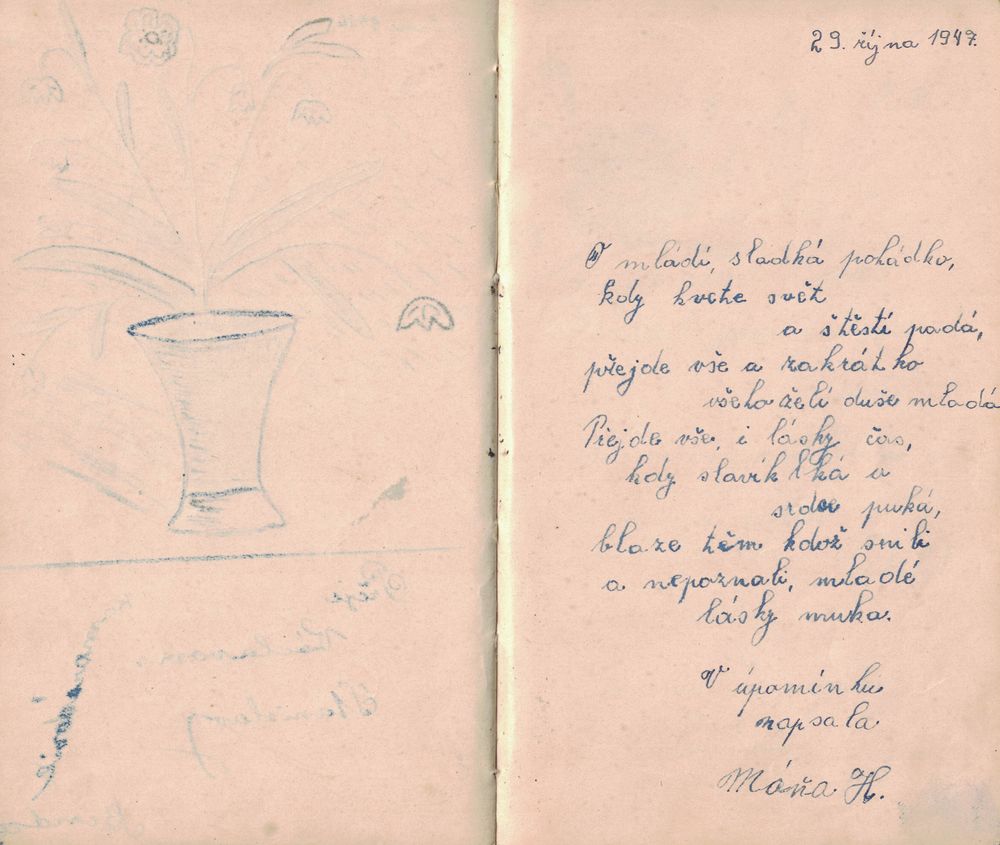 29. října 1947.
O mládí, sladká pohádko,
kdy kvete svět
a štěstí padá,
přejde vše a zakrátko
všeho želí duše mladá
Přejde vše, i lásky čas,
kdy slavík lká a
srdce puká,
blaze těm kdož snili
a nepoznali, mladé
lásky muka.
V úpomínku
napsala
Máňa H.